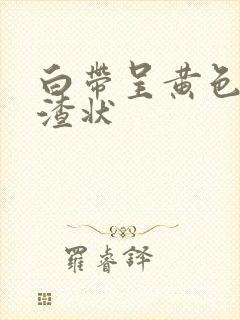 白带呈黄色
渣状
羅睿鐸